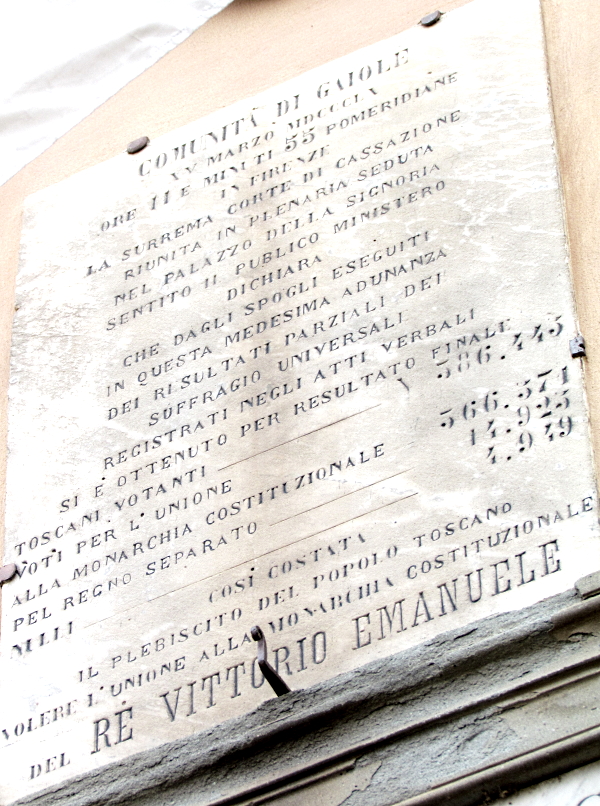 COMUNITÀ DI GAIOLE
XV MARZO MDCCCLX
ORE 11 E MINUTI 55 POMERIDIANE
IN FIRENZE
LA SURREMA CORTE DI CASSAZIONE
RIUNITA IN PLENARIA SEDUTA
NEL PALAZZO DELLA SIGNORIA
SENTITO IL PUBLICO MINISTERO
DICHIARA
CHE DAGLI SPOGLI ESEGUITI
IN QUESTA MEDESIMA ADUNANZA
DEI RISULTATI PARZIALI DEI
SUFFRAGIO UNIVERSALI
REGISTRATI NEGLI ATTI VERBALI
SI È OTTENUTO PER RESULTATO FINALE
TOSCANI VOTANTI 386.445
VOTI PER L'UNIONE
ALLA MONARCHIA COSTITUZIONALE 366.571
PEL REGNO SEPARATO 14.925
NULLI 4.949
COSÌ COSTATA
IL PLEBISCITO DEL POPOLO TOSCANO
VOLERE L'UNIONE ALLA MONARCHIA COSTITUZIONALE
DEL RE VITTORIO EMANUELE